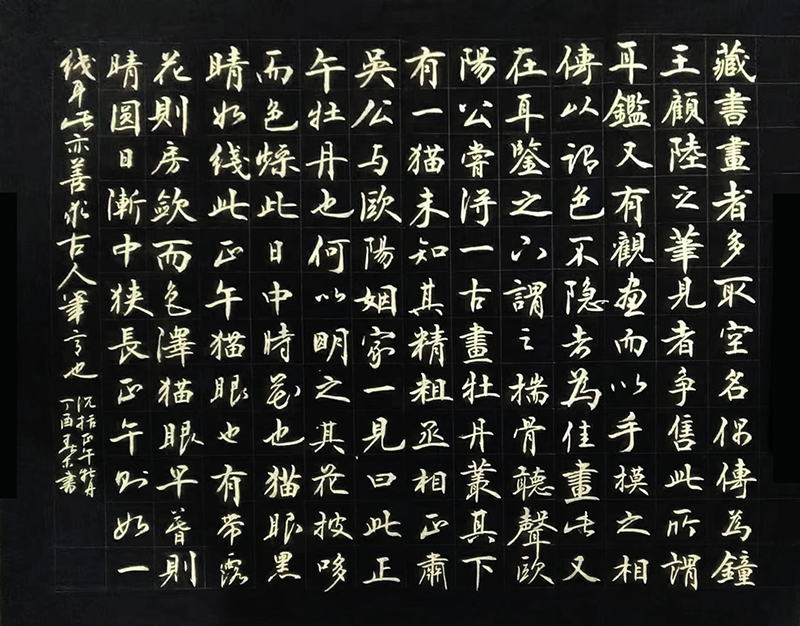 藏書畫者多取空名偶傳為鐘
王顧陸之筆見者爭售此所謂
耳鑑又有觀畫而以手摸之相
傳以謂色不隐者為佳畫此又
在耳鑒之下謂之揣骨聽聲歐
陽公嘗得一古畫牡丹叢其下
有一猫未知其精粗丞相正肅
吳公与歐陽姻家一見曰此正
午牡丹也何以明之其花披哆
而色燥此日中時花也猫眼黑
睛如綫此正午猫眼也有帶露
花則房歛而色澤猫眼早暮則
睛圓日漸中狹長正午則如一
綫耳此亦善求古人筆意也
沈括正午牡丹
丁酉書